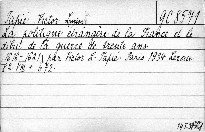 Tapié Victor Lucien 9C8571
La politique étrangère de la France et le
début de la guerre de trente ans
(1616-1621), par Victor L. Tapié. Paris 1934. Leroux
8° VIII + 672.